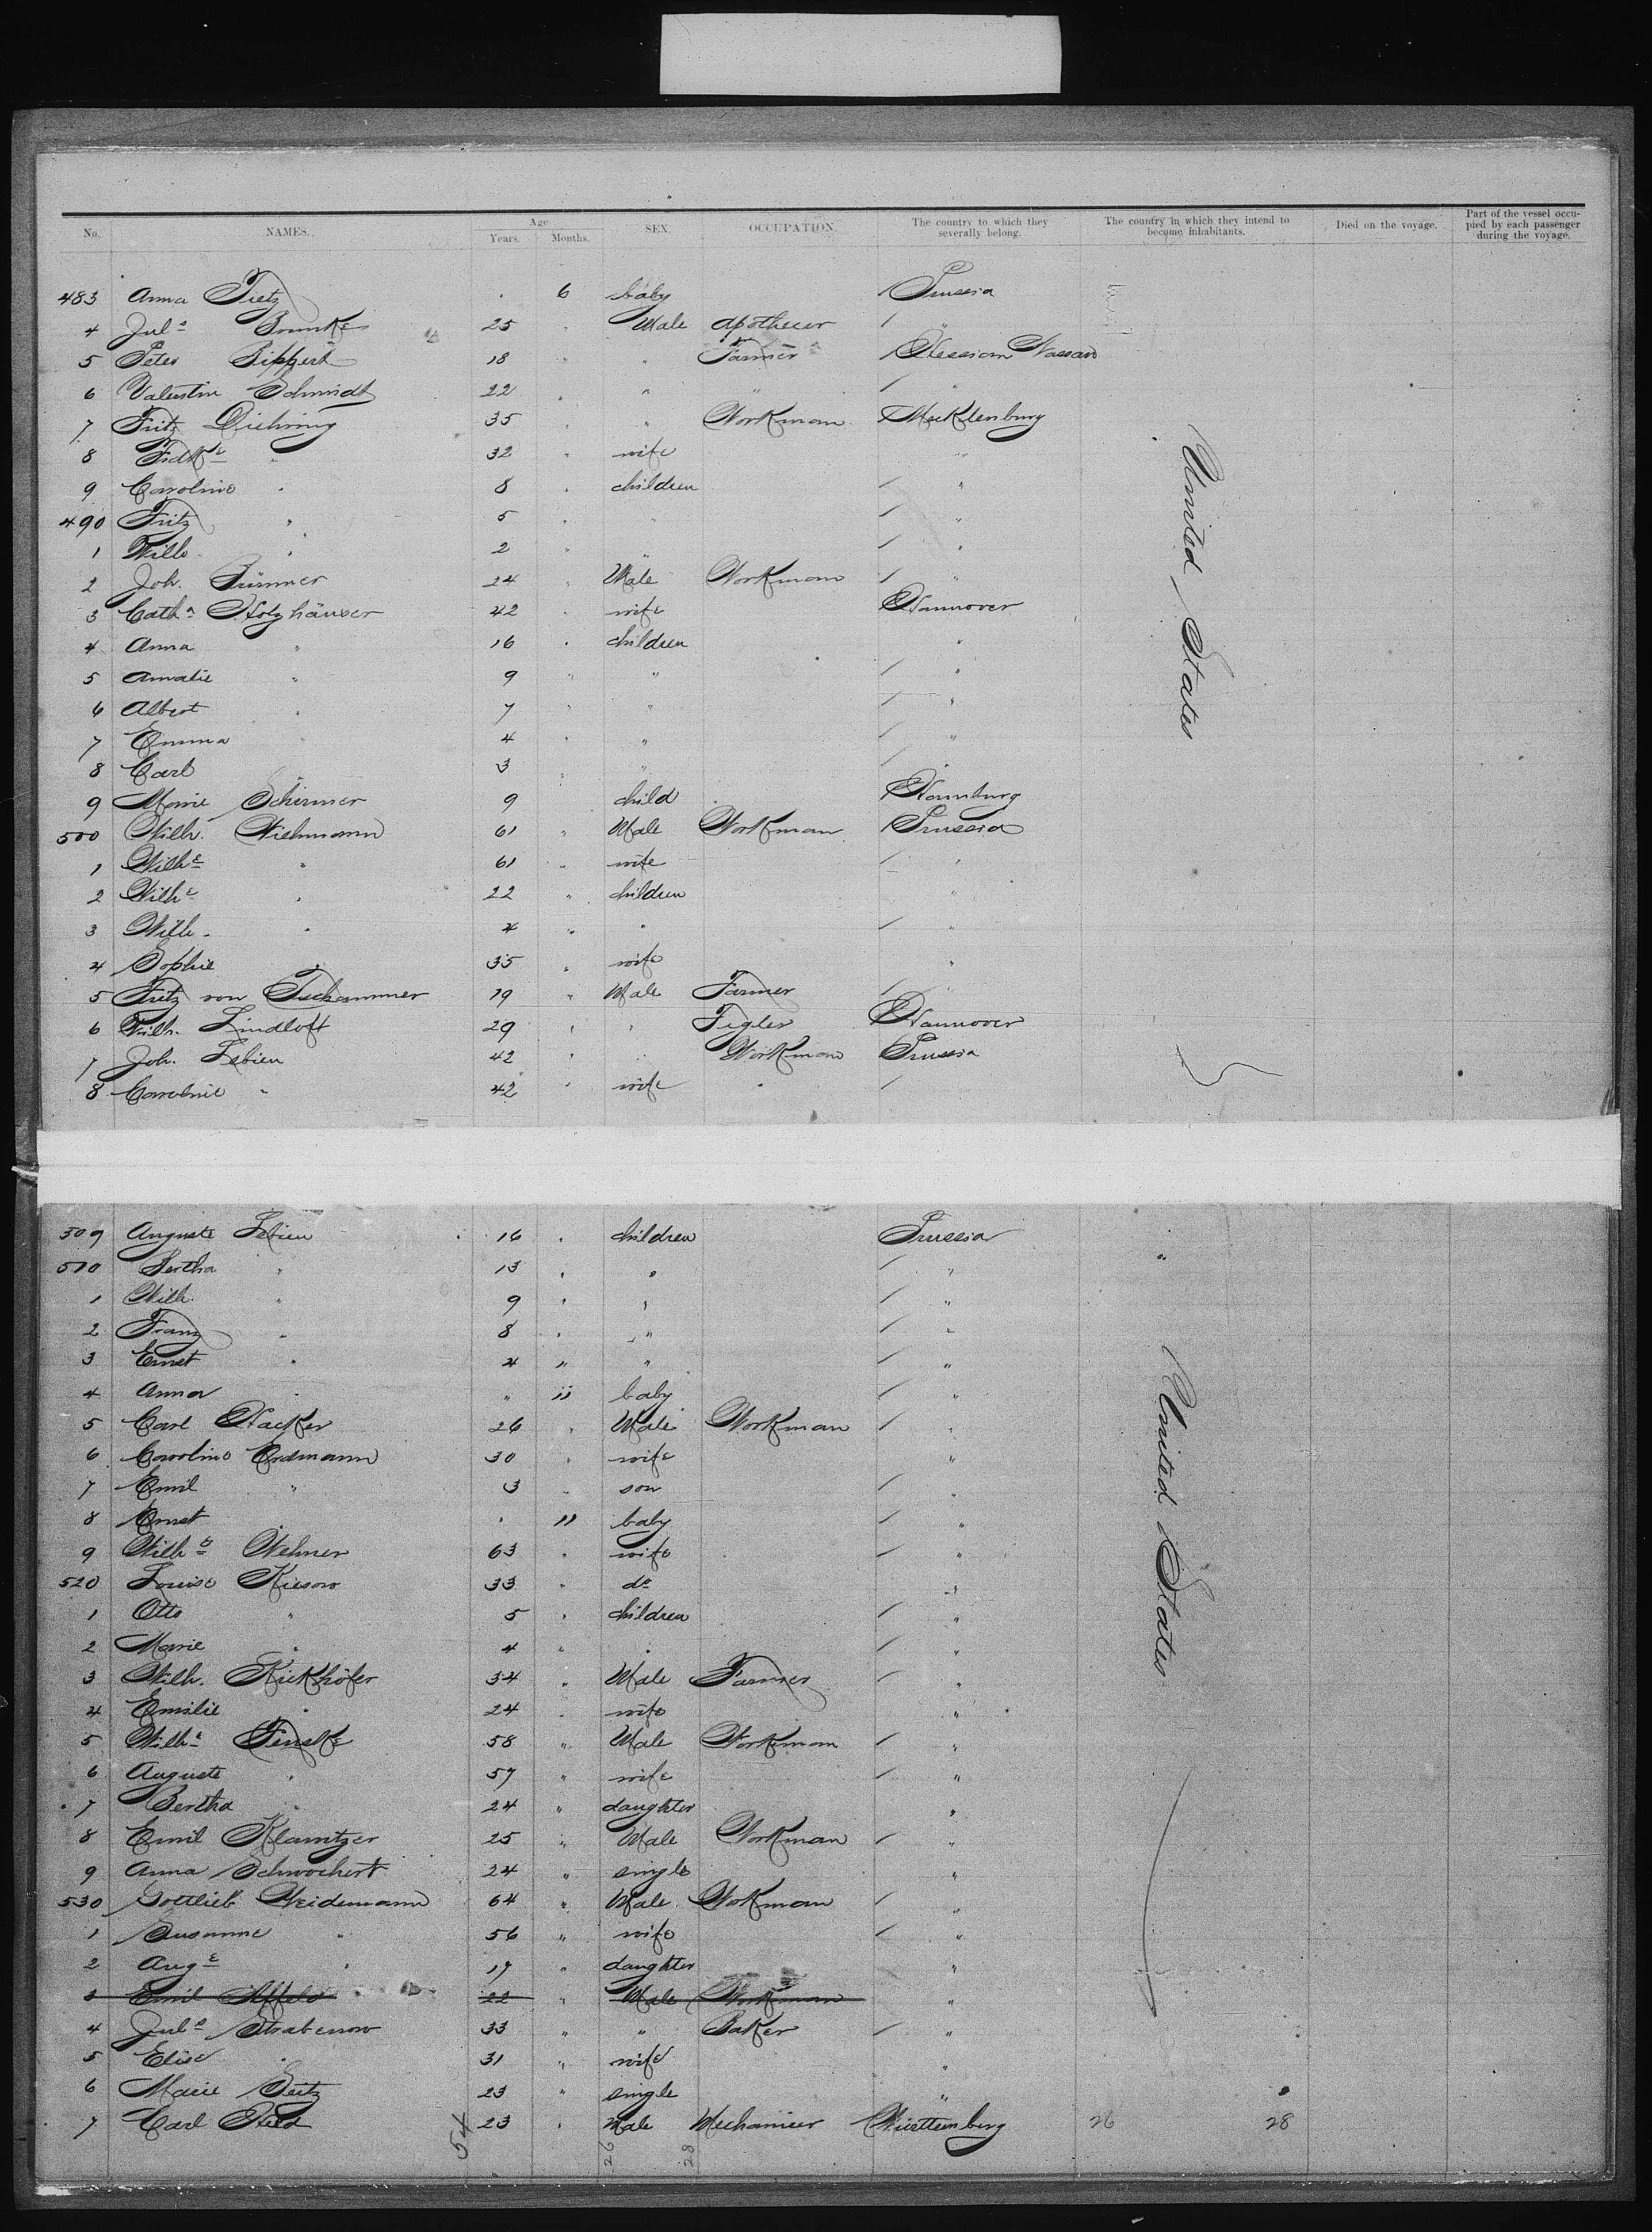 No. NAMES. Age Years. Months. SEX. OCCUPATION. The country to which they severally belong. The country in which they intend to become inhabitants. Died on the voyage. Part of the vessel occupied by each passenger during the voyage.
483 Anna Tietz . 6 baby Prussia
4 Jul.s 25 " Male Apothecer / "
5 Peter Sippert 18 " " Farmer Hessian Nassau
6 Valentin Schmidt 22 " " " / "
7 Fritz Diehring 35 " " Workman Mecklenburg
8 Fridke " 32 " wife "
9 Caroline " 8 " children / "
490 Fritz " 5 " " / "
1 Wilh. " 2 " " / "
2 Joh. Brümmer 24 " Male Workman / "
3 Cath.a Holzhäuser 42 " wife Hannover
4 Anna " 16 " children "
5 Amalie " 9 " " / "
6 Albert " 7 " " / "
7 Emma " 4 " " / "
8 Carl 3 " " /
9 Marie Schirmer 9 child Hamburg
500 Wilh. Wichmann 61 " Male Workman Prussia
1 Wilh.e " 61 " wife / "
2 Wilh.e " 22 " children "
3 Wilh. " 4 " " / "
4 Sophie " 35 " wife "
5 Fritz von Tschammer 19 " Male Farmer / "
6 Wilh. Lindloff 29 " " Tigler Hannover
7 Joh. Lebien 42 " " Workman Prussia
8 Caroline " 42 " wife " /
United States
509 Auguste Lebien 16 " children Prussia "
510 Bertha " 13 " " / "
1 Wilh. " 9 " " / "
2 Franz " 8 " " / "
3 Ernst " 4 " " / "
4 Anna " " 11 baby / "
5 Carl Hacker 26 " Male Workman / "
6 Caroline Erdmann 30 " wife "
7 Emil " 3 " son / "
8 Ernst " " 11 baby / "
9 Wilh.e Wehner 63 " wife / "
520 Louise Kiesow 33 " do "
1 Otto " 5 " children / "
2 Marie " 4 " " / "
3 Wilh. Kickhöfer 34 " Male Farmer / "
4 Emilie " 24 " wife "
5 Wilh.e Fenske 58 " Male Workman / "
6 Auguste " 57 " wife / "
7 Bertha " 24 " daughter "
8 Emil Klamtzer 25 " Male Workman / "
9 Anna Schwochert 24 " single "
530 Gottlieb Weidemann 64 " Male Workman / "
1 Susanne " 56 " wife / "
2 Aug.e " 17 " daughter "
3 Emil Affeld 22 " Male Workman "
4 Jul.s Strabenow 33 " " Baker / "
5 Elise " 31 " wife "
6 Marie Seitz 23 " single "
7 Carl Held 23 " Male Mechanicer Württemberg 26 28
United States
54 26 28